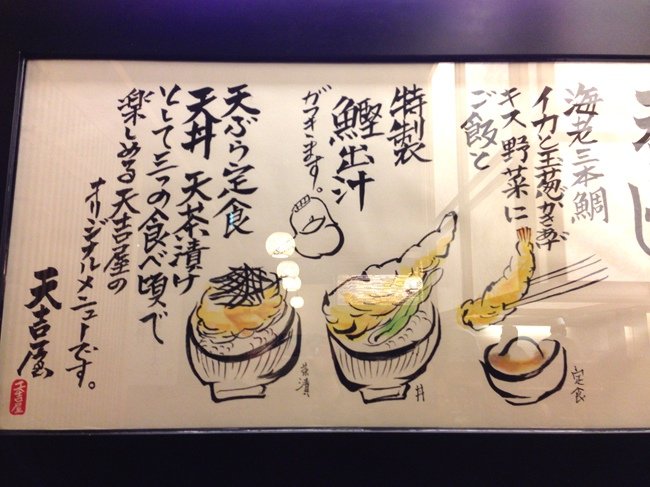 海老三本鯛
イカと玉葱かき揚げ
キス 野菜に
ご飯と
特製
鰹出汁
がつきます。
天ぷら定食
天丼 天茶漬け
として三つの食べ頃で
楽しめる天吉屋の
オリジナルメニューです。
天吉屋
天吉屋
茶漬
丼
定食